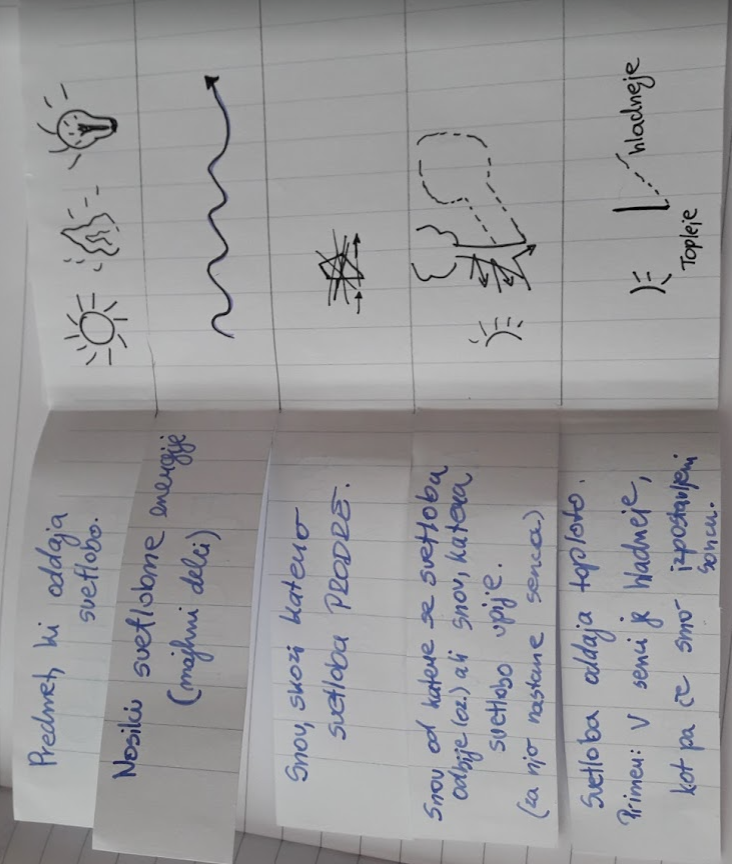 Predmet, ki oddaja
svetlobo.
Nosilci svetlobne energije
(majhni delci)
Snov, skozi katero
svetloba PRODRE.
Snov od katere se svetloba
odbije (oz.) ali snov, katera
svetlobo vpije.
(za njo nastane senca)
Svetloba oddaja toploto.
Primer: V senci je hladneje,
kot pa če smo izpostavljeni
soncu.
Topleje
hladneje